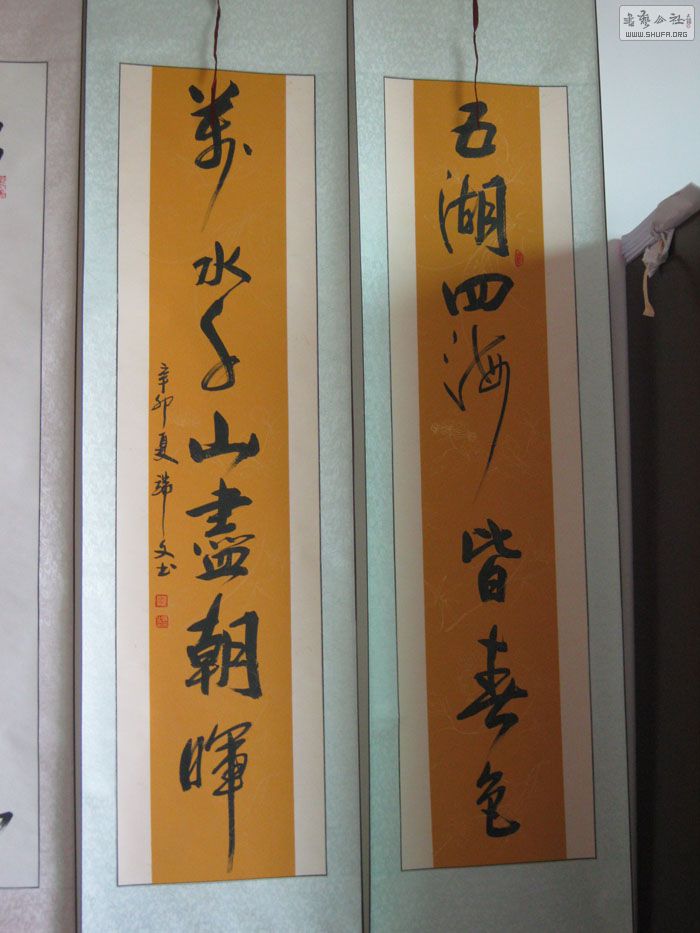 五湖四海皆春色
萬水千山盡朝暉
辛卯夏瑞文书
书艺公社
WWW.SHUFA.ORG